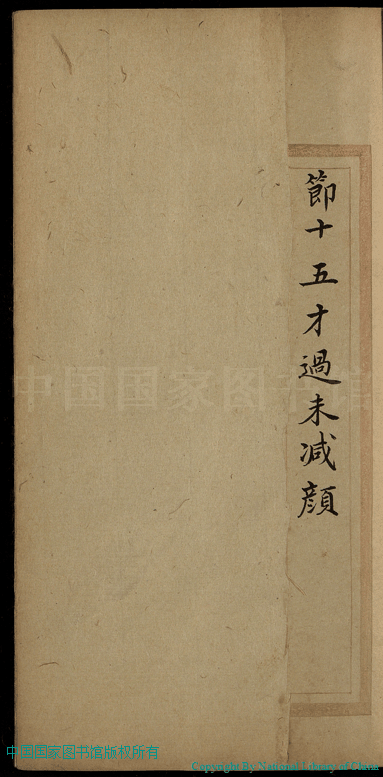 節十五才過未减顔
中国国家图书馆
中国国家图书馆版权所有
Copyright By National Library of China